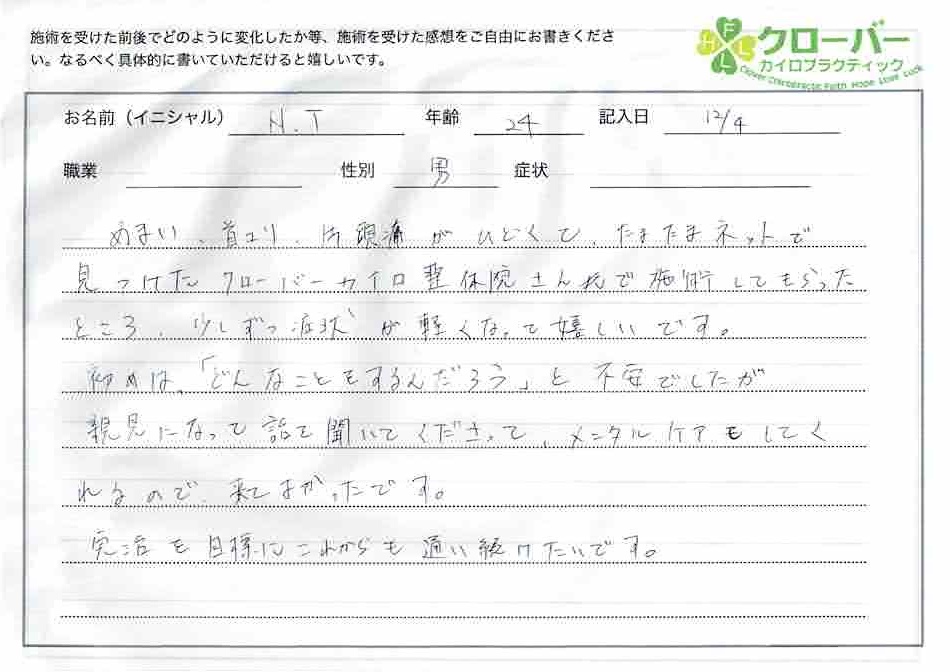 施術を受けた前後でどのように変化したか等、施術を受けた感想をご自由にお書きくださ
い。なるべく具体的に書いていただけると嬉しいです。
FHLL
クローバー
カイロプラクティック
Clover Chiropractic Faith Hope Love Luck
お名前（イニシャル） N.T 年齢 24 記入日 12/4
職業 性別 男 症状
めまい、首コリ、片頭痛がひどくて、たまたまネットで
見つけたクローバーカイロ整体院さんで施術してもらった
ところ、少しずつ症状が軽くなって嬉しいです。
初めは、「どんなことをするんだろう」と不安でしたが
親見になって話て聞いてくださって、メンタルケアもしてく
れるので、来てよかったです。
完治を目標にこれからも通い続けたいです。